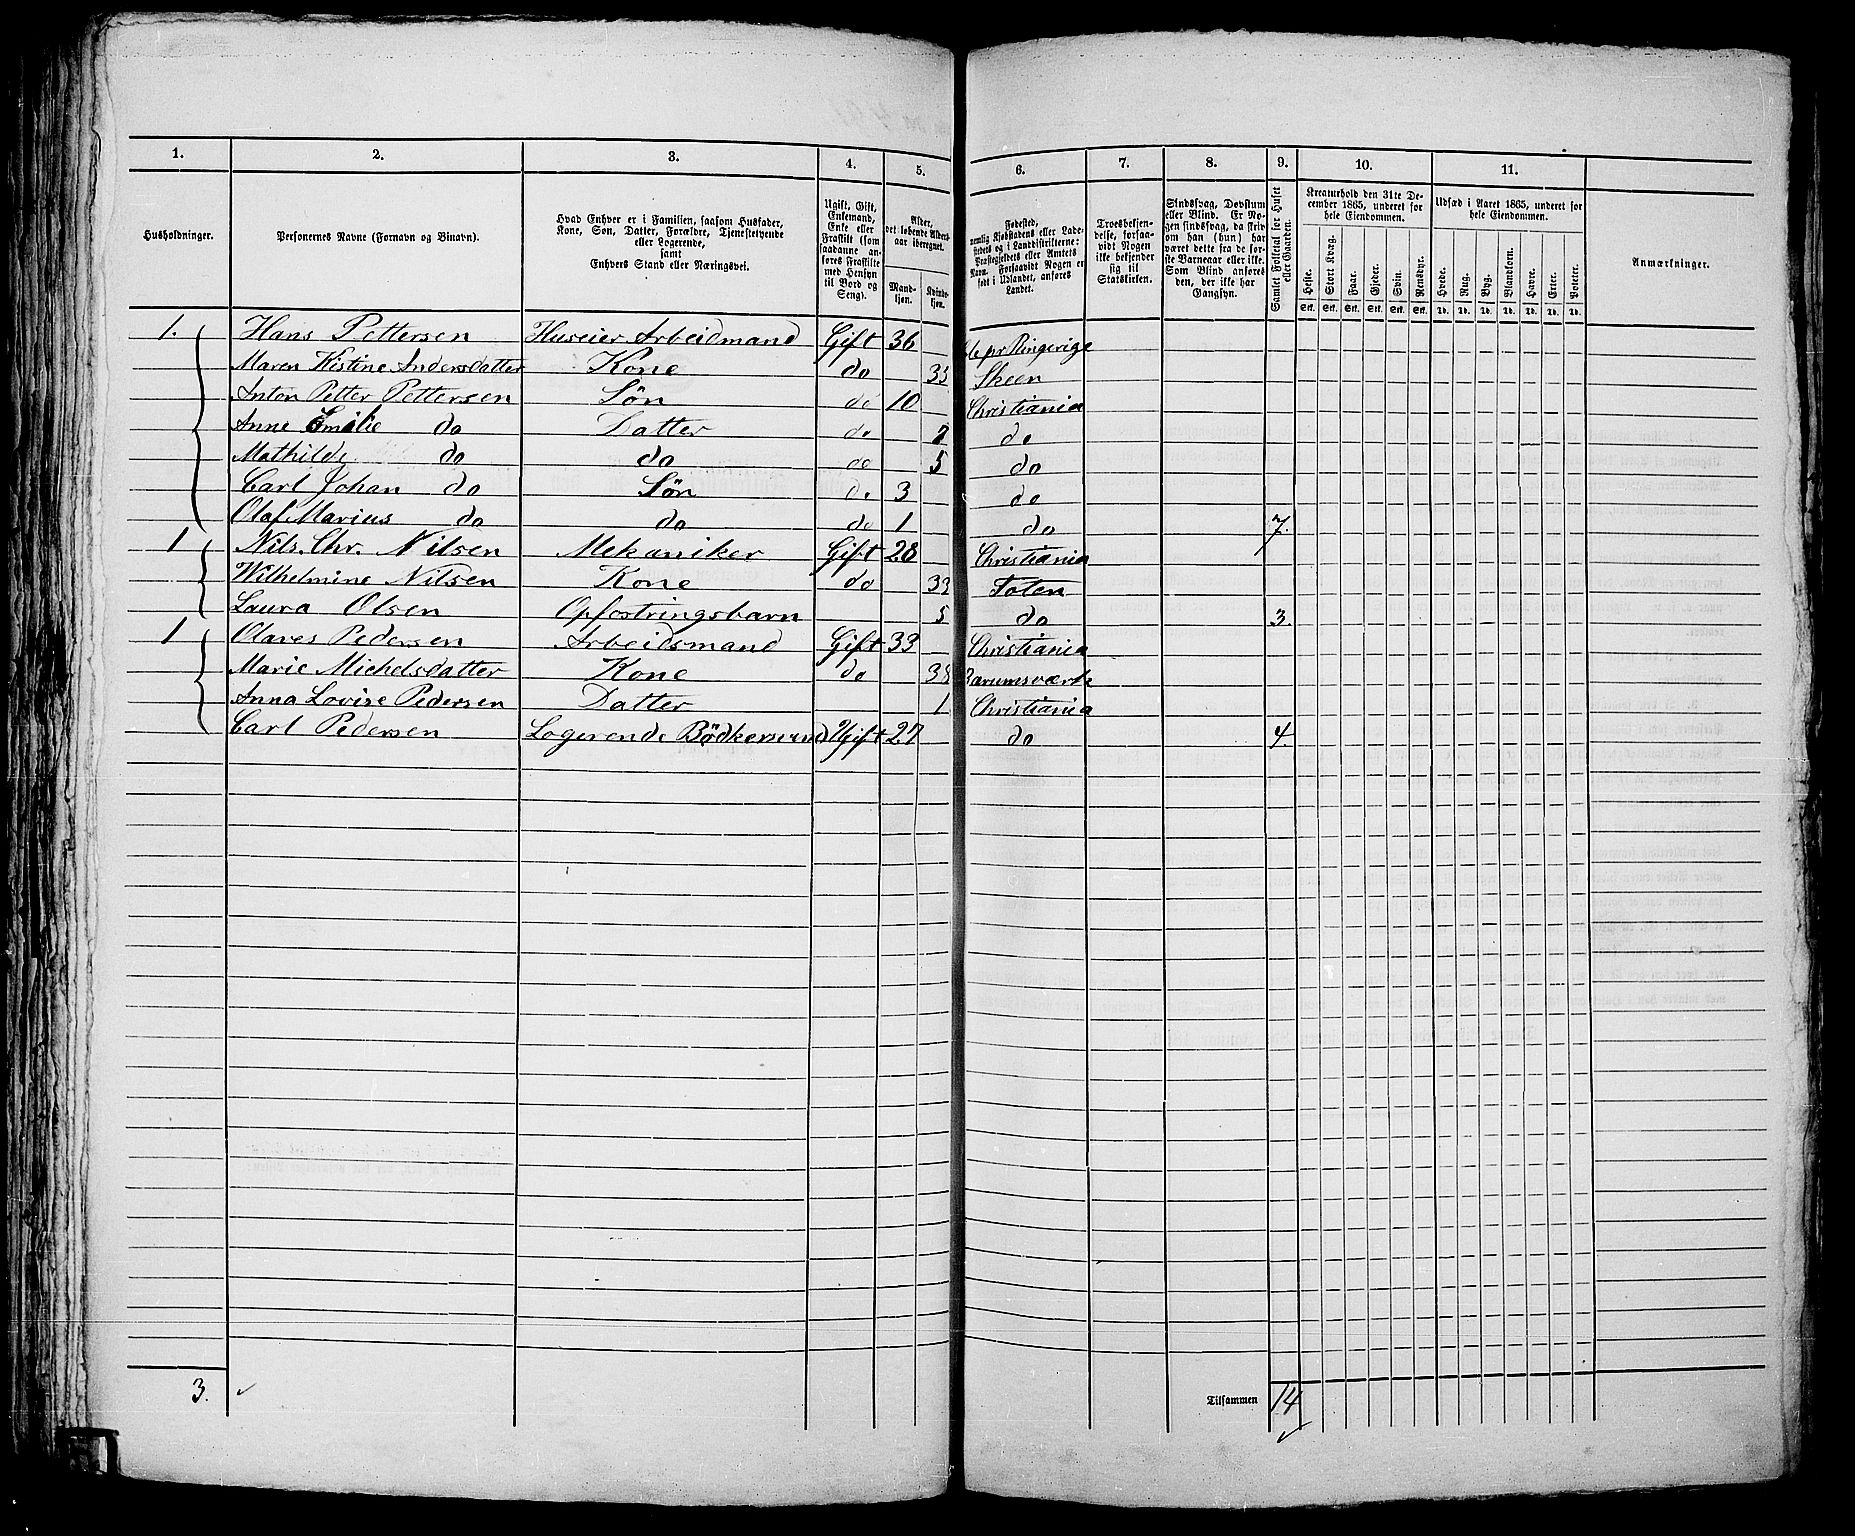 1. 2. 3. 4. 5. 6. 7. 8. 9. 10. 11.
Husholdninger.
Personernes Navne (Fornavn og Binavn).
Hvad Enhver er i Familien, saasom Husfader,
Kone, Søn, Datter, Forældre, Tjenestetyende
eller Logerende,
samt
Enhvers Stand eller Næringsvei.
Ugift, Gift,
Enkemand,
Enke eller
Fraskilt (som
saadanne an-
føres Fraskilte
med Hensyn
til Bord og
Seng).
Alder,
det løbende Alders-
aar iberegnet.
Mand-
kjøn.
Kvinde-
kjøn.
Fødested,
nemlig Kjøbstadens eller Lade-
stedets og i Landdistrikterne:
Præstegjeldets eller Amtets
Navn. Forsaavidt Nogen er
født i Udlandet, anføres
Landet.
Troesbekjen-
delse, forsaa-
vidt Nogen
ikke bekjender
sig til
Statskirken.
Sindssvag, Døvstum
eller Blind. Er No-
gen sindssvag, da skriv
om han (hun) har
været dette fra de før-
ste Barneaar eller ikke.
Som Blind anføres
den, der ikke har
Gangsyn.
Samlet Folketal for Huset
eller Gaarden.
Kreaturhold den 31te De-
cember 1865, underet for
hele Eiendommen.
Heste. Stort Kvæg. Faar. Gjeder. Svin. Rensdyr.
Stk. Stk. Stk. Stk. Stk. Stk.
Udsæd i Aaret 1865, underet for
hele Eiendommen.
Hvede. Rug. Byg. Blandkorn. Havre. Erter. Poteter.
Td. Td. Td. Td. Td. Td. Td.
Anmærkninger.
1. Hans Pettersen Huseier Arbeidmand Gift 36 pr Ringerige
Maren Kistine Andersdatter Kone do 33 Skeen
Anton Petter Pettersen Søn do 10 Christiania
Anne Emilie do Datter do 7 do
Mathilde do do do 5 do
Carl Johan do Søn do 3 do
Olaf Marius do do do 1 do 7.
1 Nils. Chr. Nilsen Mekaniker Gift 28 Christiania
Wilhelmine Nilsen Kone do 33 Toten
Laura Olsen Opfostringsbarn 5 do 3.
1 Olaves Pedersen Arbeidsmand Gift 33 Christiania
Marie Michelsdatter Kone do 38 Bærumsværk
Anna Lovise Pedersen Datter 1 Christiania
Carl Pedersen Logerende Bødkersvend Ugift 27 do 4.
3. Tilsammen 14